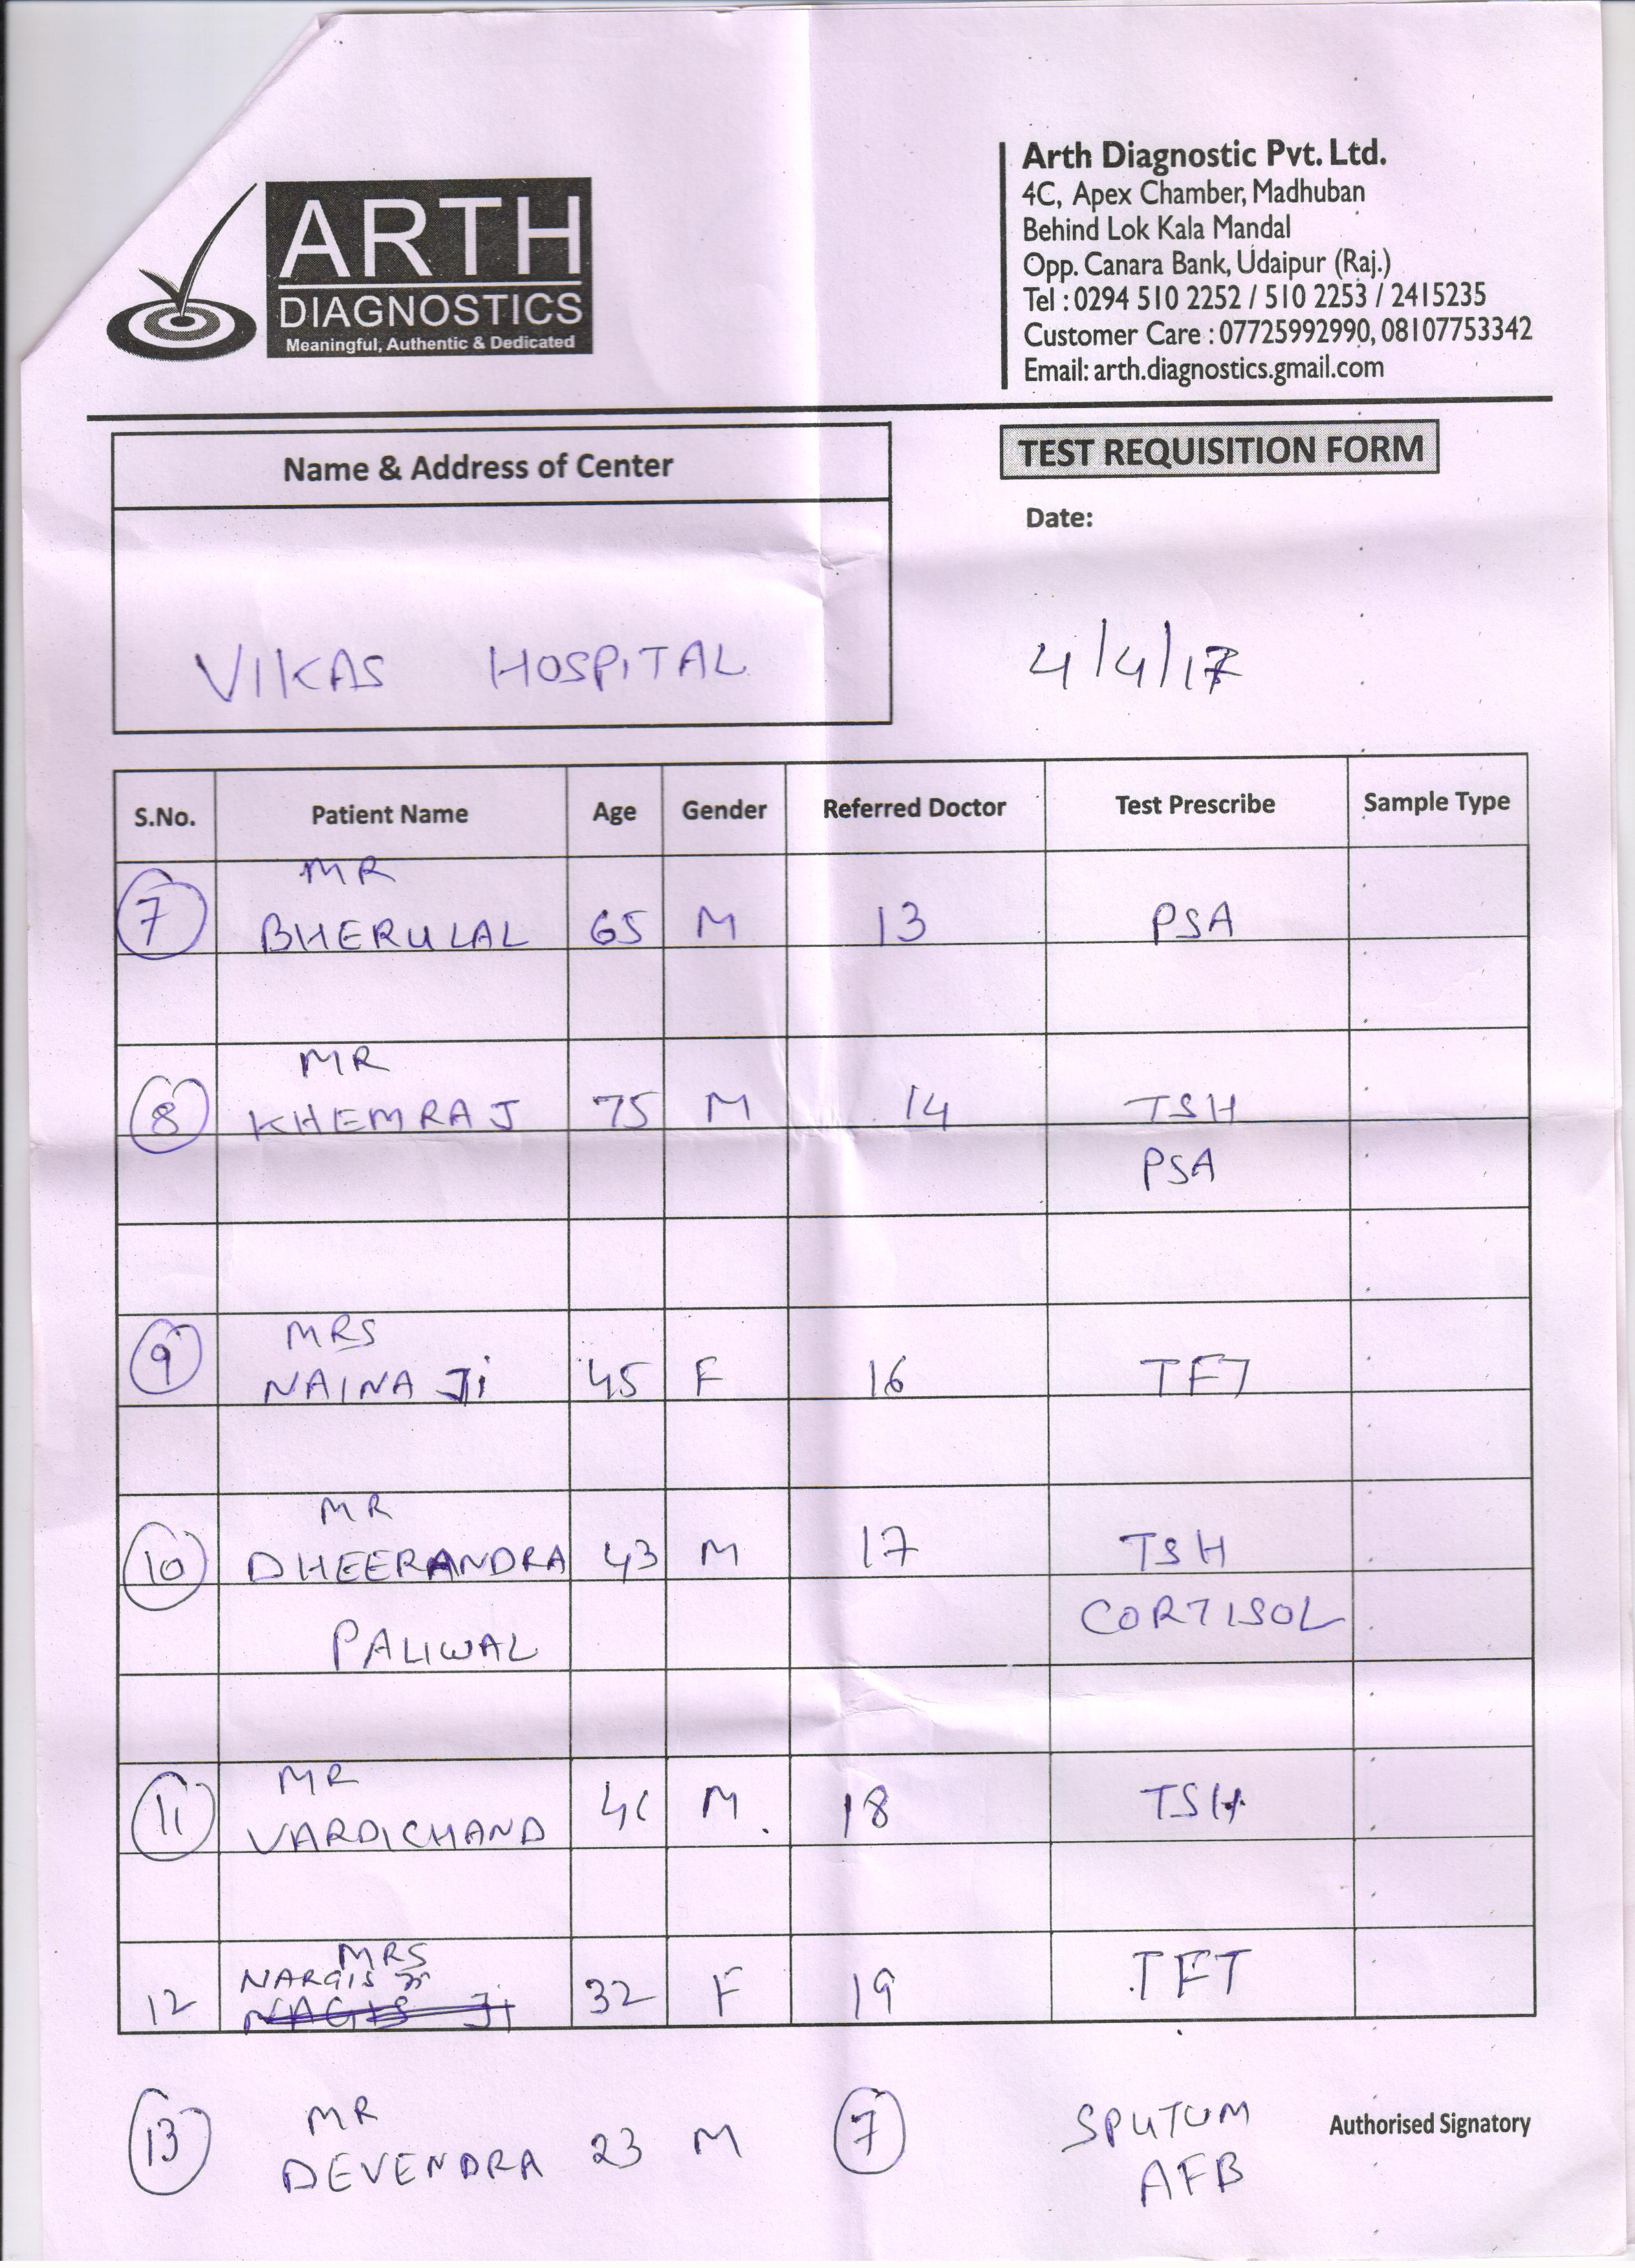 ARTH
DIAGNOSTICS
Meaningful, Authentic & Dedicated
Arth Diagnostic Pvt. Ltd.
4C, Apex Chamber, Madhuban
Behind Lok Kala Mandal
Opp. Canara Bank, Udaipur (Raj.)
Tel : 0294 510 2252 / 510 2253 / 2415235
Customer Care : 07725992990, 08107753342
Email: arth.diagnostics.gmail.com
Name & Address of Center
TEST REQUISITION FORM
Date:
VIKAS HOSPITAL
4/4/17
S.No. Patient Name Age Gender Referred Doctor Test Prescribe Sample Type
MR
7 BHERULAL 65 M 13 PSA
MR
8 KHEMRAJ 75 M 14 TSH
PSA
MRS
9 NAINA Ji 45 F 16 TFT
MR
10 DHEERANDRA 43 M 17 TSH
CORTISOL
PALIWAL
MR
11 VARDICHAND M 18 TSH
MRS
NARGIS Ji
12 NAGIS Ji 32 F 19 TFT
MR
13 DEVENDRA 23 M 7 SPUTUM
AFB
Authorised Signatory